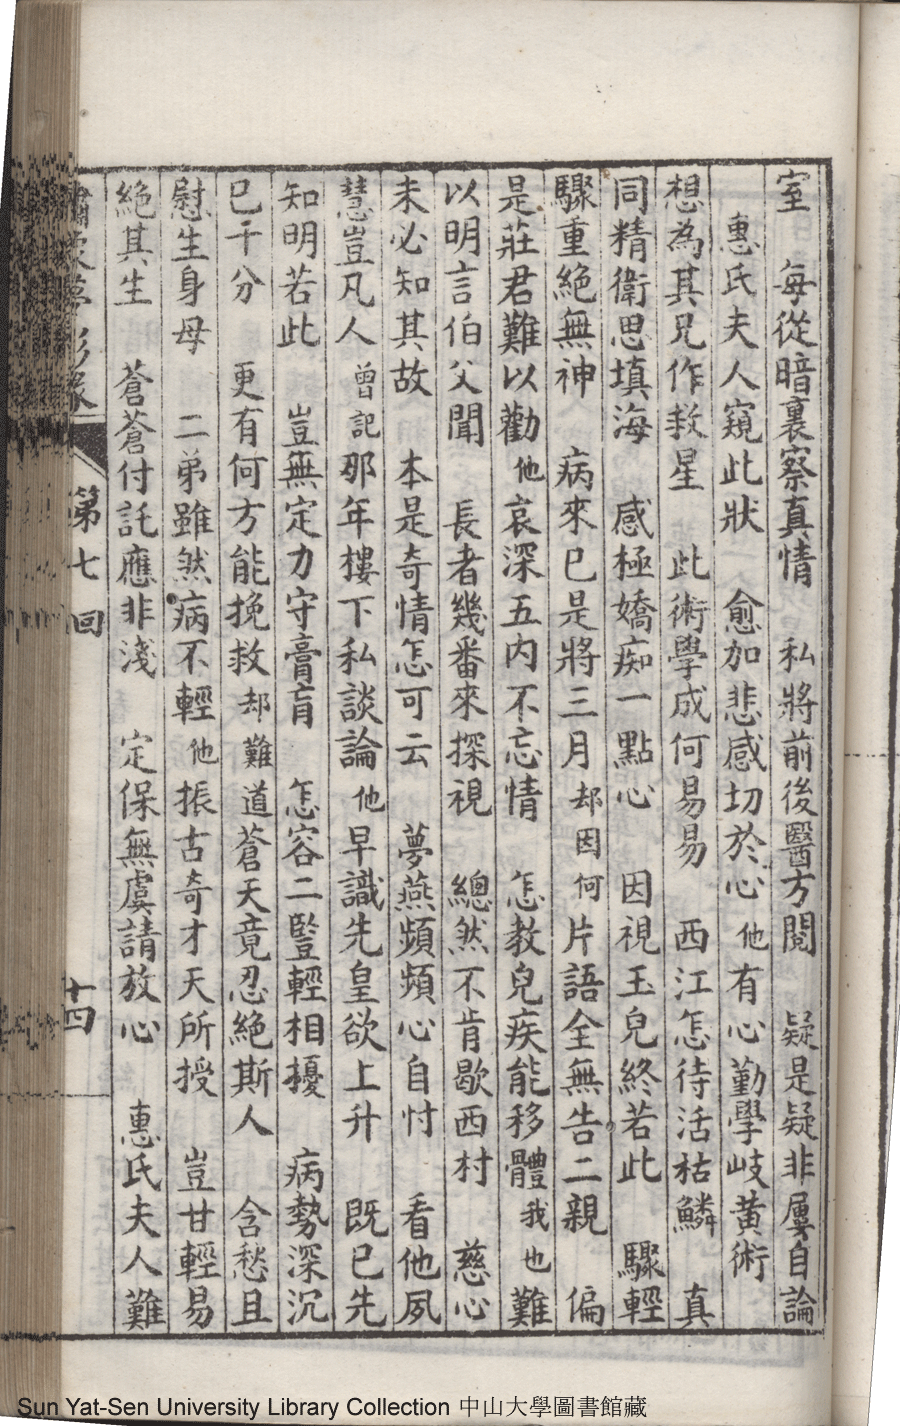 室　每從暗裏察真情　私將前後醫方閱　疑是疑非屢自論
惠氏夫人窺此狀　愈加悲感切於心他有心勤學岐黄術
想為其兄作救星　此術學成何易易　西江怎待活枯鱗　真
同精衛思填海　感極嬌痴一點心　因視玉皃終若此　驟輕
驟重絶無神　病來已是將三月却因何片語全無告二親　偏
是莊君難以勸他哀深五内不忘情　怎教皃疾能移體我也難
以明言伯父聞　長者幾番來探視　總然不肯歇西村　慈心
未必知其故　本是奇情怎可云　夢燕頻頻心自忖　看他夙
慧豈凡人曾記那年樓下私談論他早識先皇欲上升　既已先
知明若此　豈無定力守膏肓　怎容二豎輕相擾　病勢深沉
已千分　更有何方能挽救却難道蒼天竟忍絶斯人　含愁且
慰生身母　二弟雖然病不輕他振古奇才天所授　豈甘輕易
絶其生　蒼蒼付託應非淺　定保無虞請放心　惠氏夫人難
第七回　十四
Sun Yat-Sen University Library Collection 中山大學圖書館藏